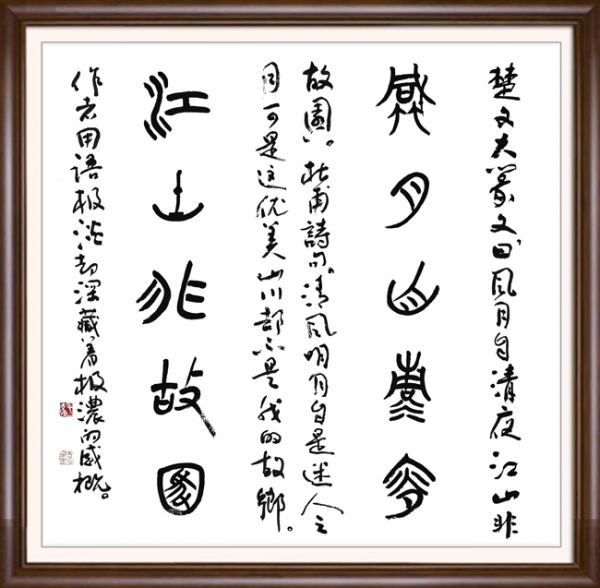 楚文大篆文曰风月自清夜江山非
風月自清夜
故園。杜甫詩句。清风明月自是迷人之
可是这优美山川却不是我的故鄉。
江山非故園
作者用語极淡却深藏着极濃的感概。